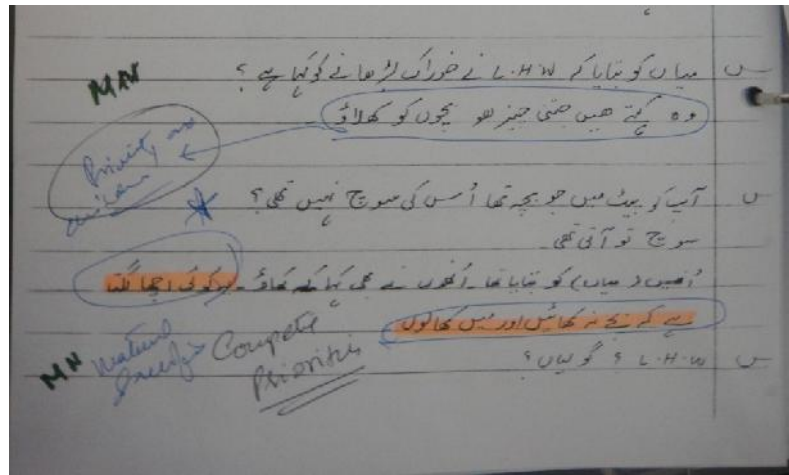 س میاں کو بتایا کہ L.H.W نے خوراک بڑھانے کو کہا ہے ؟
MN
وہ کہتے ھیں جتنی چیز ھو بچوں کو کھلاؤ
Priority on children
س آپکے پیٹ میں جو بچہ تھا اُس کی سوچ نہیں تھی؟
سوچ تو آتی تھی۔
اُنھیں (میاں) کو بتایا تھا۔ اُنھوں نے بھی کہا کھاؤ۔ کوئی اچھا لگتا
ہے کہ بچے نہ کھائیں اور میں کھالوں
MN Compete
Priorities
س L.H.W ؟ گولیاں؟